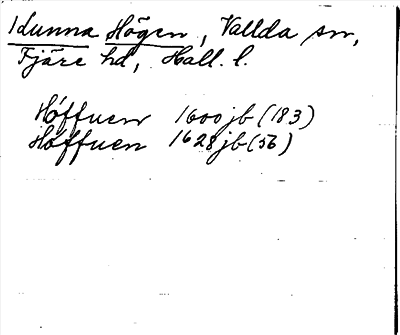 Idunna Högen, Vallda sn,
Fjäre hd, Hall. l.
Höffuen 1600 jb (183)
Höffuen 1628 jb (56)